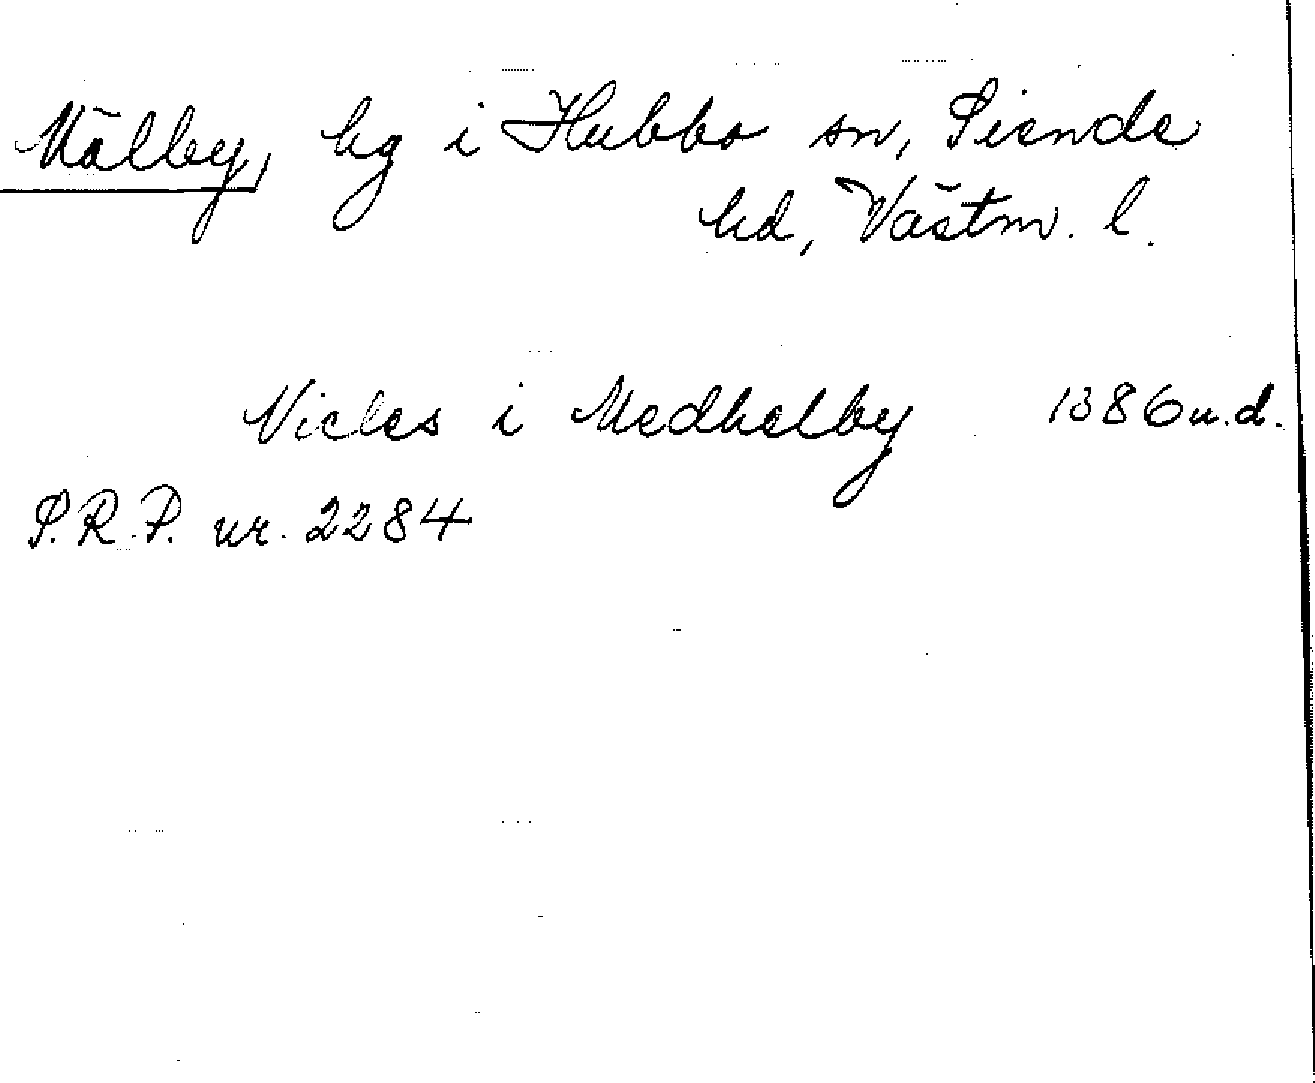 Mälby, hg i Hubbo sn, Siende
hd, Västm. l.
Nicles i Medhelby 1386 u.d.
S.R.P. nr. 2284